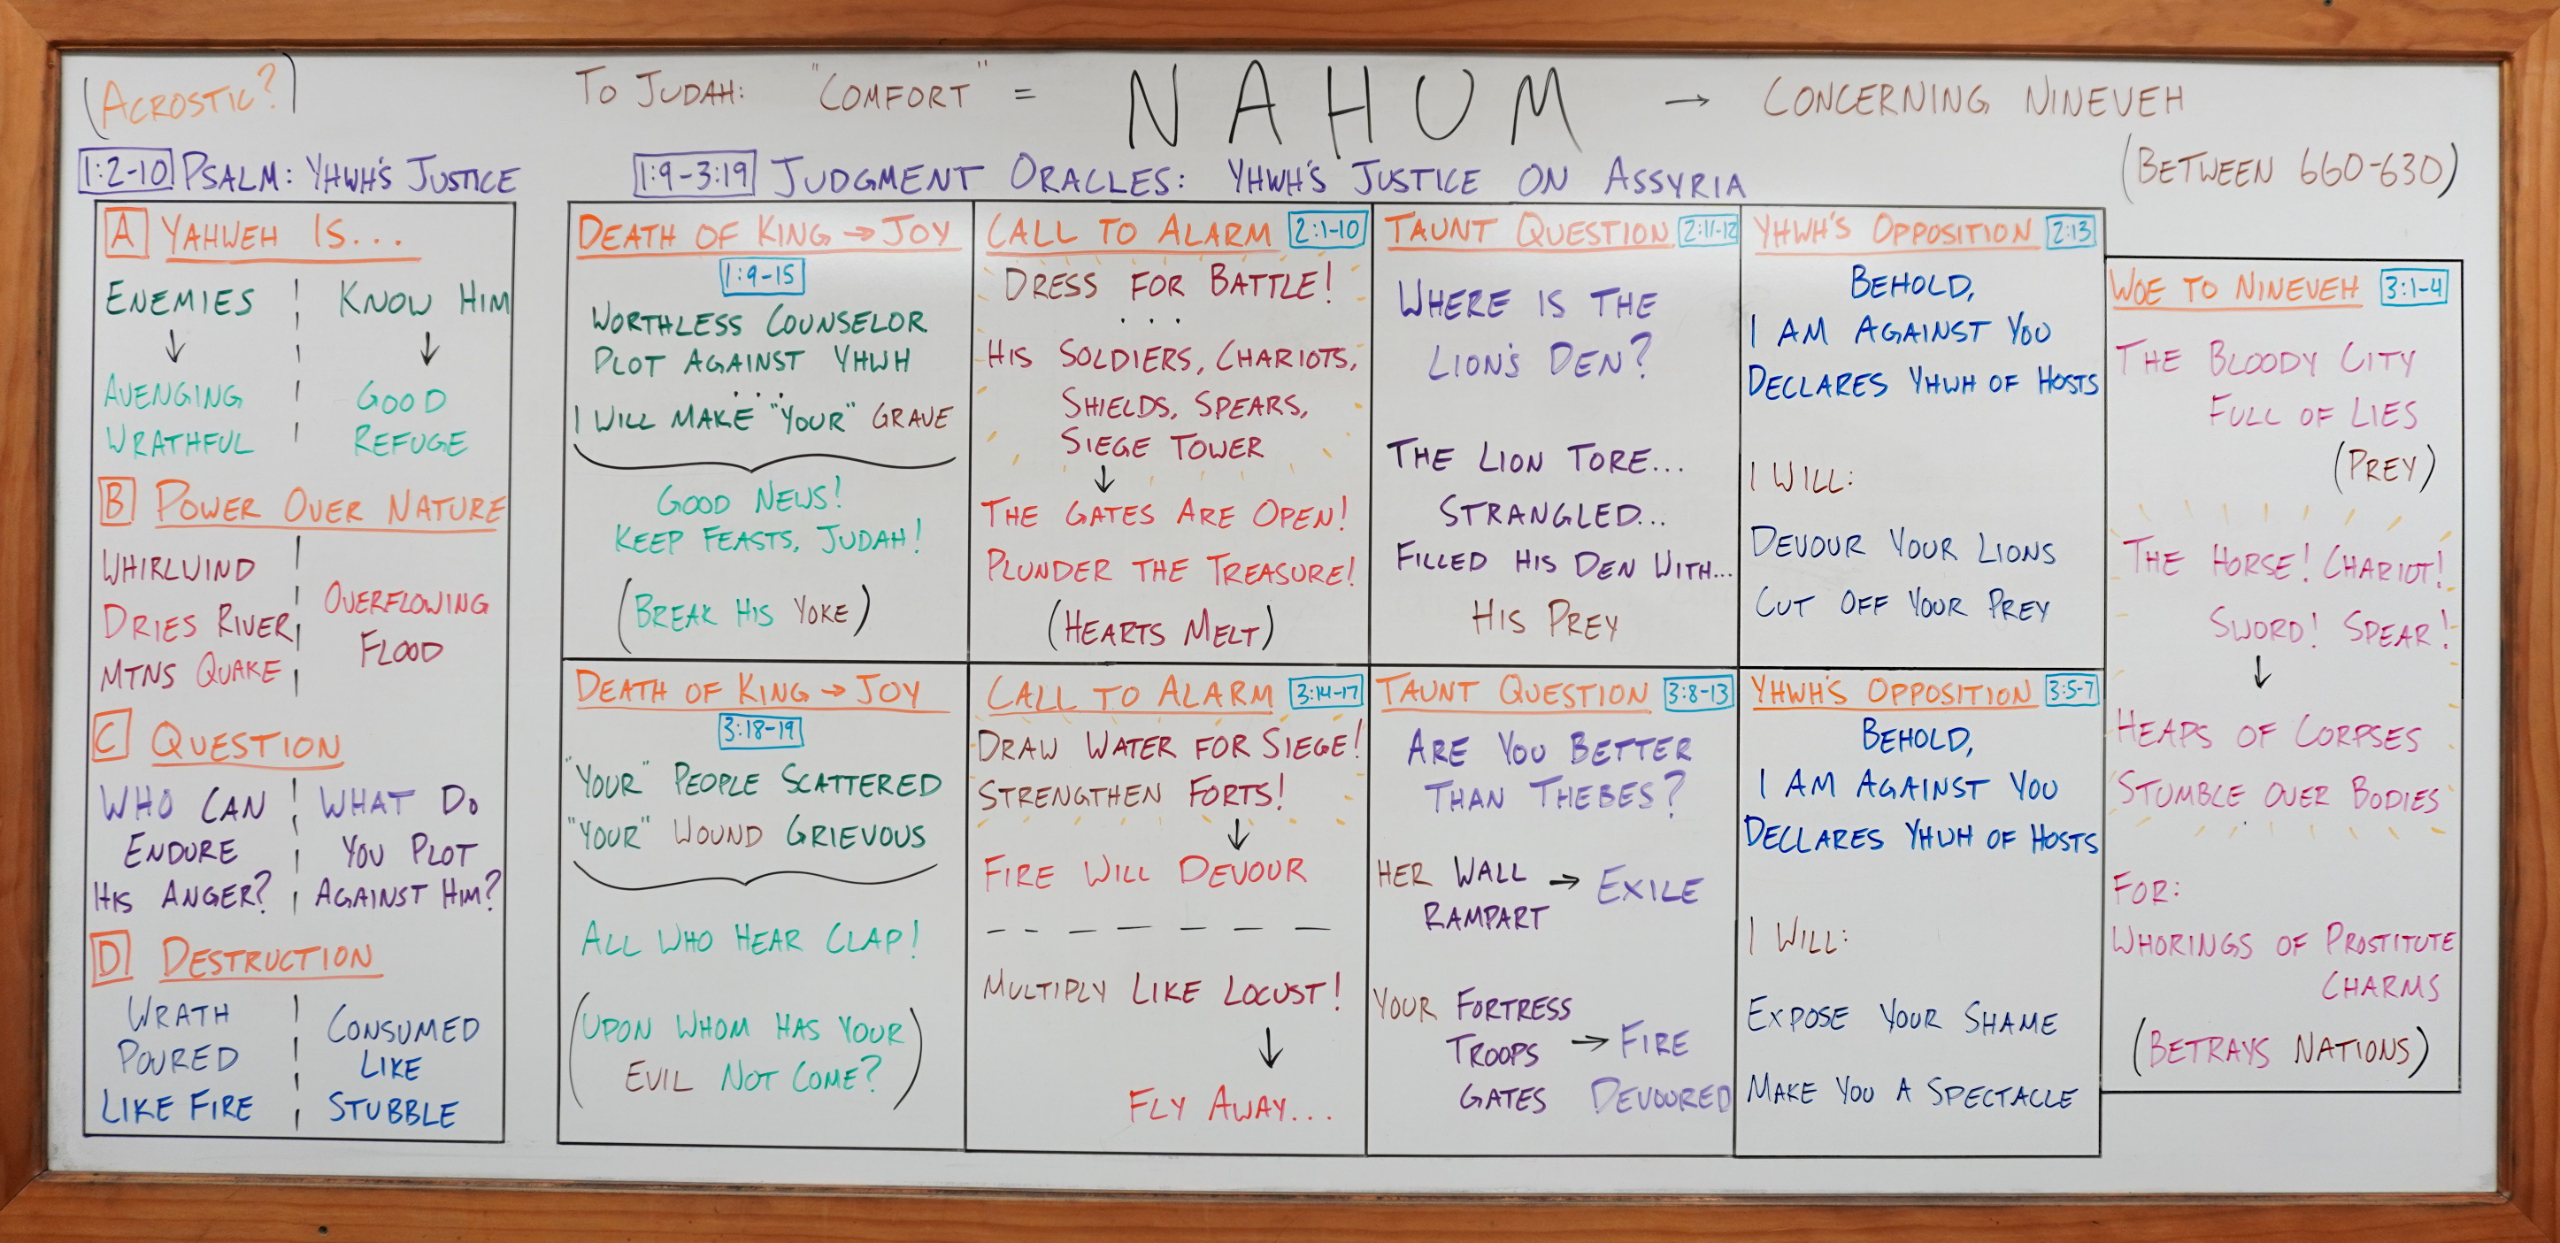 (ACROSTIC?)
TO JUDAH: "COMFORT" = NAHUM → CONCERNING NINEVEH
(BETWEEN 660-630)
1:2-10 PSALM: YHWH'S JUSTICE
A YAHWEH IS...
ENEMIES
↓
AVENGING
WRATHFUL
KNOW HIM
↓
GOOD
REFUGE
B POWER OVER NATURE
WHIRLWIND
DRIES RIVER
MTNS QUAKE
OVERFLOWING
FLOOD
C QUESTION
WHO CAN
ENDURE
HIS ANGER?
WHAT DO
YOU PLOT
AGAINST HIM?
D DESTRUCTION
WRATH
POURED
LIKE FIRE
CONSUMED
LIKE
STUBBLE
1:9-3:19 JUDGMENT ORACLES: YHWH'S JUSTICE ON ASSYRIA
DEATH OF KING → JOY
1:9-15
WORTHLESS COUNSELOR
PLOT AGAINST YHWH
...
I WILL MAKE "YOUR" GRAVE
GOOD NEWS!
KEEP FEASTS, JUDAH!
(BREAK HIS YOKE)
CALL TO ALARM 2:1-10
DRESS FOR BATTLE!
...
HIS SOLDIERS, CHARIOTS,
SHIELDS, SPEARS,
SIEGE TOWER
↓
THE GATES ARE OPEN!
PLUNDER THE TREASURE!
(HEARTS MELT)
TAUNT QUESTION 2:11-12
WHERE IS THE
LION'S DEN?
THE LION TORE...
STRANGLED...
FILLED HIS DEN WITH...
HIS PREY
YHWH'S OPPOSITION 2:13
BEHOLD,
I AM AGAINST YOU
DECLARES YHWH OF HOSTS
I WILL:
DEVOUR YOUR LIONS
CUT OFF YOUR PREY
WOE TO NINEVEH 3:1-4
THE BLOODY CITY
FULL OF LIES
(PREY)
THE HORSE! CHARIOT!
SWORD! SPEAR!
↓
HEAPS OF CORPSES
STUMBLE OVER BODIES
FOR:
WHORINGS OF PROSTITUTE
CHARMS
(BETRAYS NATIONS)
DEATH OF KING → JOY
3:18-19
"YOUR" PEOPLE SCATTERED
"YOUR" WOUND GRIEVOUS
ALL WHO HEAR CLAP!
(UPON WHOM HAS YOUR
EVIL NOT COME?)
CALL TO ALARM 3:14-17
DRAW WATER FOR SIEGE!
STRENGTHEN FORTS!
↓
FIRE WILL DEVOUR
MULTIPLY LIKE LOCUST!
↓
FLY AWAY...
TAUNT QUESTION 3:8-13
ARE YOU BETTER
THAN THEBES?
HER WALL → EXILE
RAMPART
YOUR FORTRESS
TROOPS → FIRE
GATES DEVOURED
YHWH'S OPPOSITION 3:5-7
BEHOLD,
I AM AGAINST YOU
DECLARES YHWH OF HOSTS
I WILL:
EXPOSE YOUR SHAME
MAKE YOU A SPECTACLE